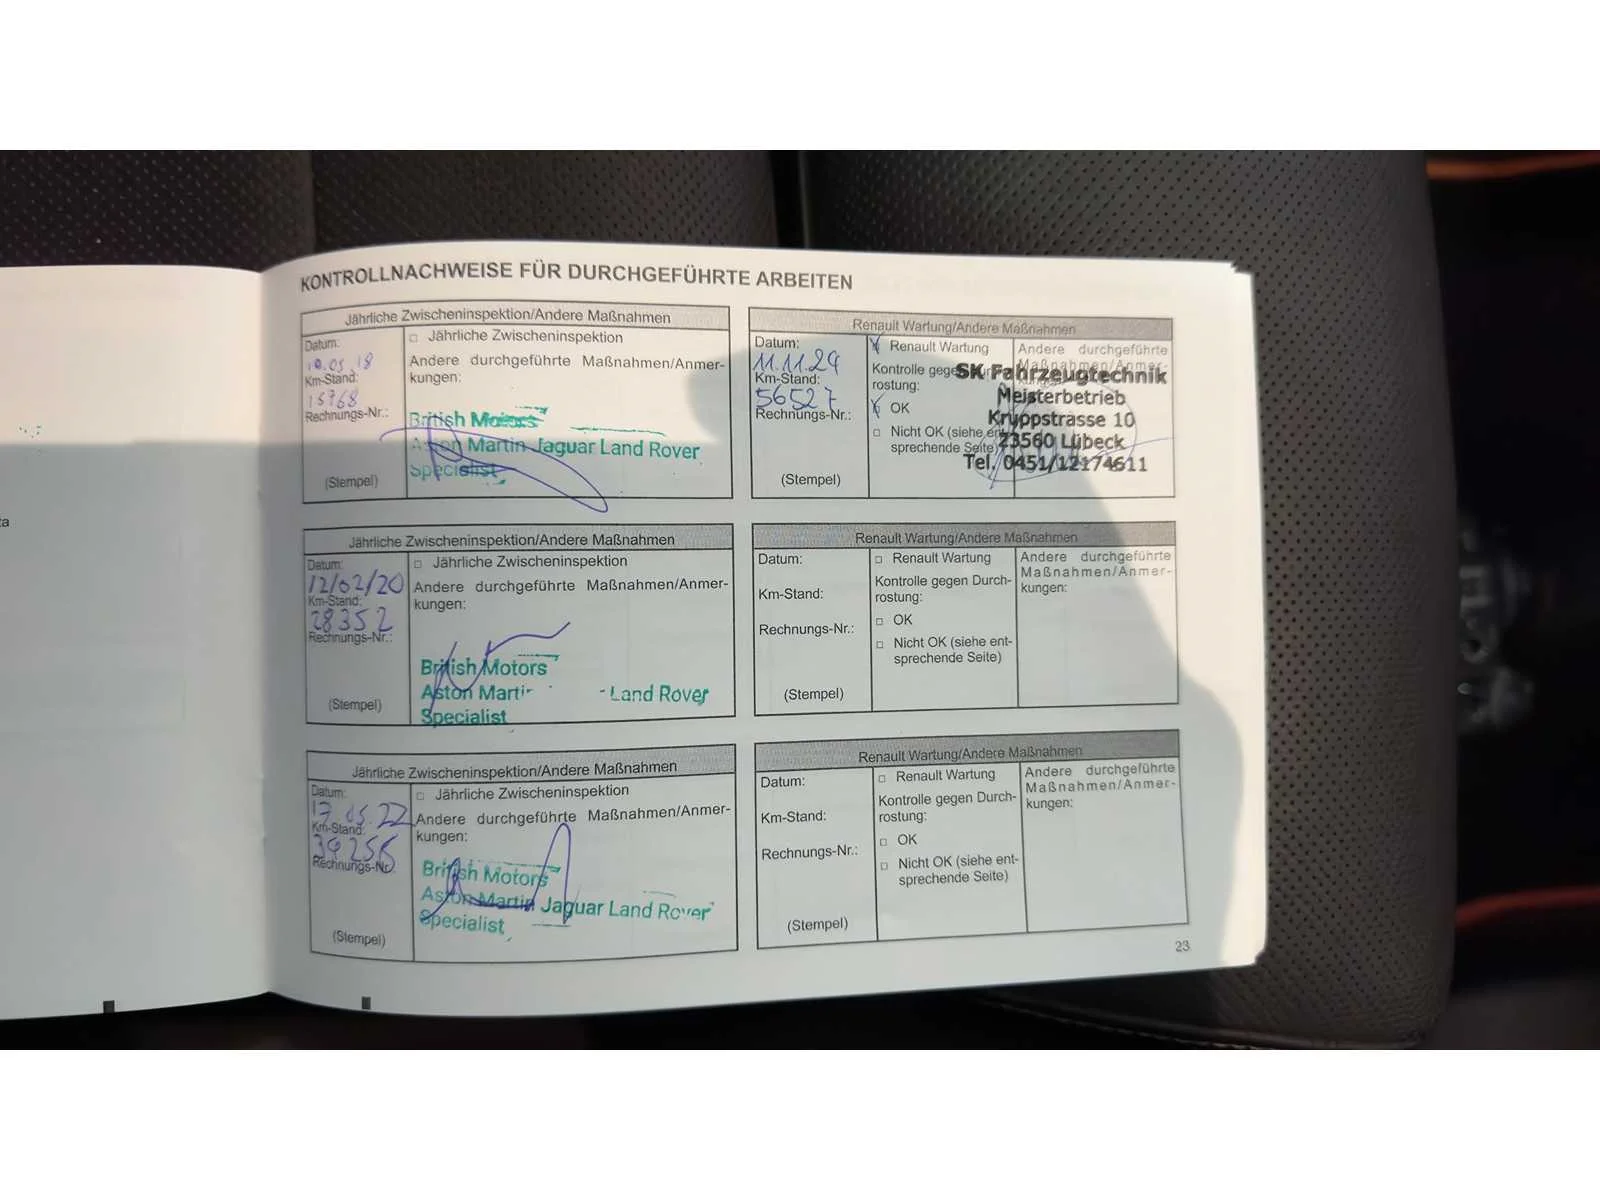 KONTROLLNACHWEISE FÜR DURCHGEFÜHRTE ARBEITEN
Jährliche Zwischeninspektion/Andere Maßnahmen
Datum:
10.05.18
Km-Stand:
15968
Rechnungs-Nr.:
(Stempel)
□ Jährliche Zwischeninspektion
Andere durchgeführte Maßnahmen/Anmer-
kungen:
British Motors
Aston Martin Jaguar Land Rover
Specialist
Renault Wartung/Andere Maßnahmen
Datum:
11.11.24
Km-Stand:
56527
Rechnungs-Nr.:
(Stempel)
Renault Wartung
Kontrolle gegen
rostung:
OK
□ Nicht OK (siehe ent-
sprechende Seite)
Andere durchgeführte
Maßnahmen/Anmer-
SK Fahrzeugtechnik
Meisterbetrieb
Kruppstrasse 10
23560 Lübeck
Tel. 0451/12174611
Jährliche Zwischeninspektion/Andere Maßnahmen
Datum:
12/02/20
Km-Stand:
28352
Rechnungs-Nr.:
(Stempel)
□ Jährliche Zwischeninspektion
Andere durchgeführte Maßnahmen/Anmer-
kungen:
British Motors
Aston Martin Land Rover
Specialist
Renault Wartung/Andere Maßnahmen
Datum:
Km-Stand:
Rechnungs-Nr.:
(Stempel)
□ Renault Wartung
Kontrolle gegen Durch-
rostung:
□ OK
□ Nicht OK (siehe ent-
sprechende Seite)
Andere durchgeführte
Maßnahmen/Anmer-
kungen:
Jährliche Zwischeninspektion/Andere Maßnahmen
Datum:
17.05.22
Km-Stand:
39256
Rechnungs-Nr.
(Stempel)
□ Jährliche Zwischeninspektion
Andere durchgeführte Maßnahmen/Anmer-
kungen:
British Motors
Aston Martin Jaguar Land Rover
Specialist
Renault Wartung/Andere Maßnahmen
Datum:
Km-Stand:
Rechnungs-Nr.:
(Stempel)
□ Renault Wartung
Kontrolle gegen Durch-
rostung:
□ OK
□ Nicht OK (siehe ent-
sprechende Seite)
Andere durchgeführte
Maßnahmen/Anmer-
kungen:
23